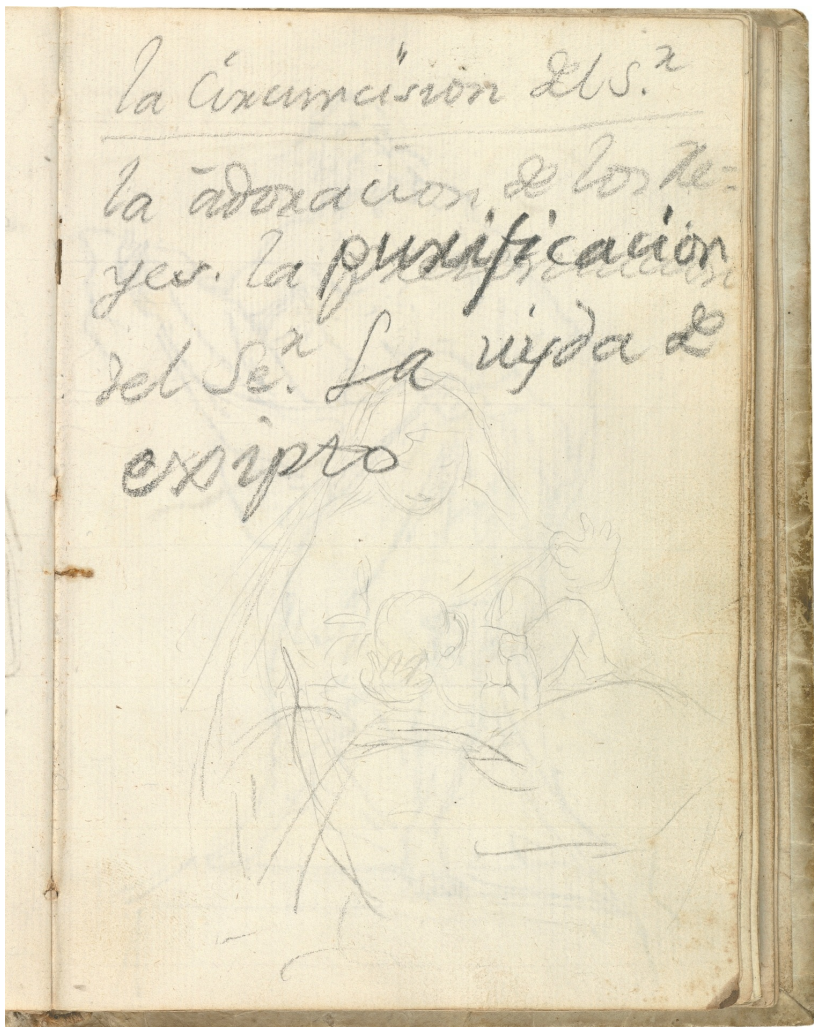 la Circumcision del S.r
la adoracion de los Re=
yes. la purificacion
del Se.r La uyda de
exsipto